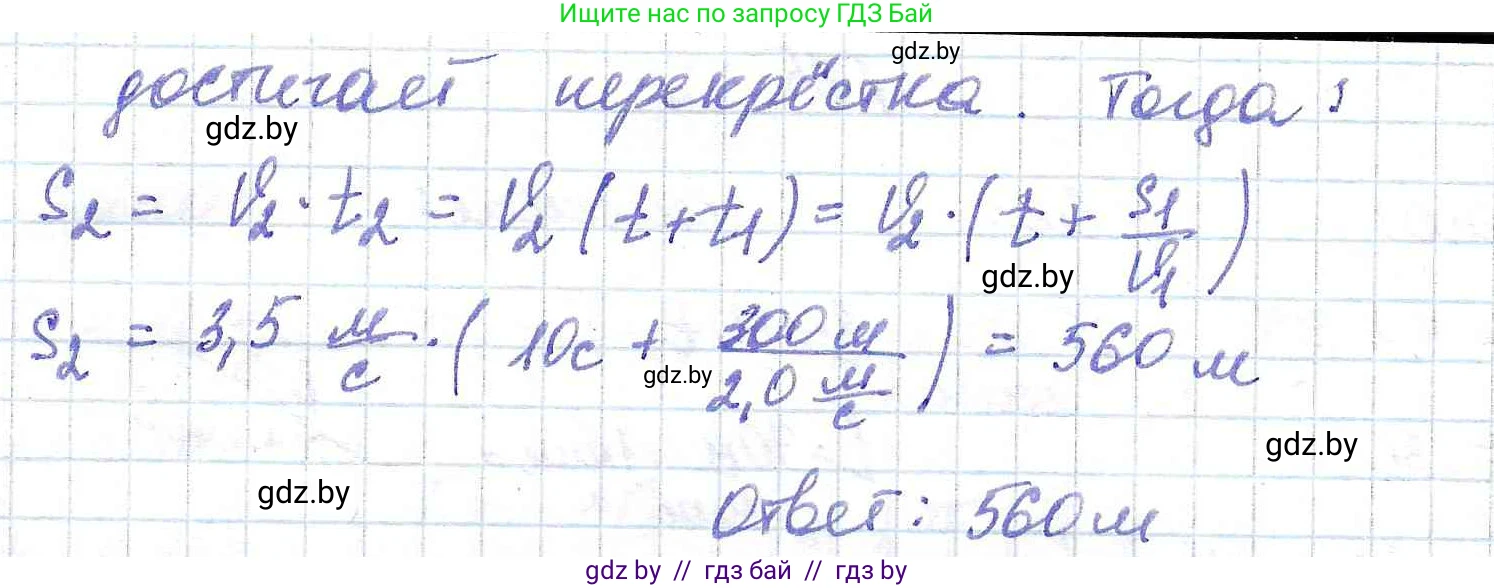 Ищите нас по запросу ГДЗ Бай
gdz.by
достигает перекрёстка. Тогда:
gdz.by
S₂ = V₂ · t₂ = V₂ (t + t₁) = V₂ · (t + S₁/V₁)
gdz.by
S₂ = 3,5 м/с · (10с + 300м/2,0 м/с) = 560 м
gdz.by
gdz.by
gdz.by
Ответ: 560м
gdz.by // гдз бай // гдз by